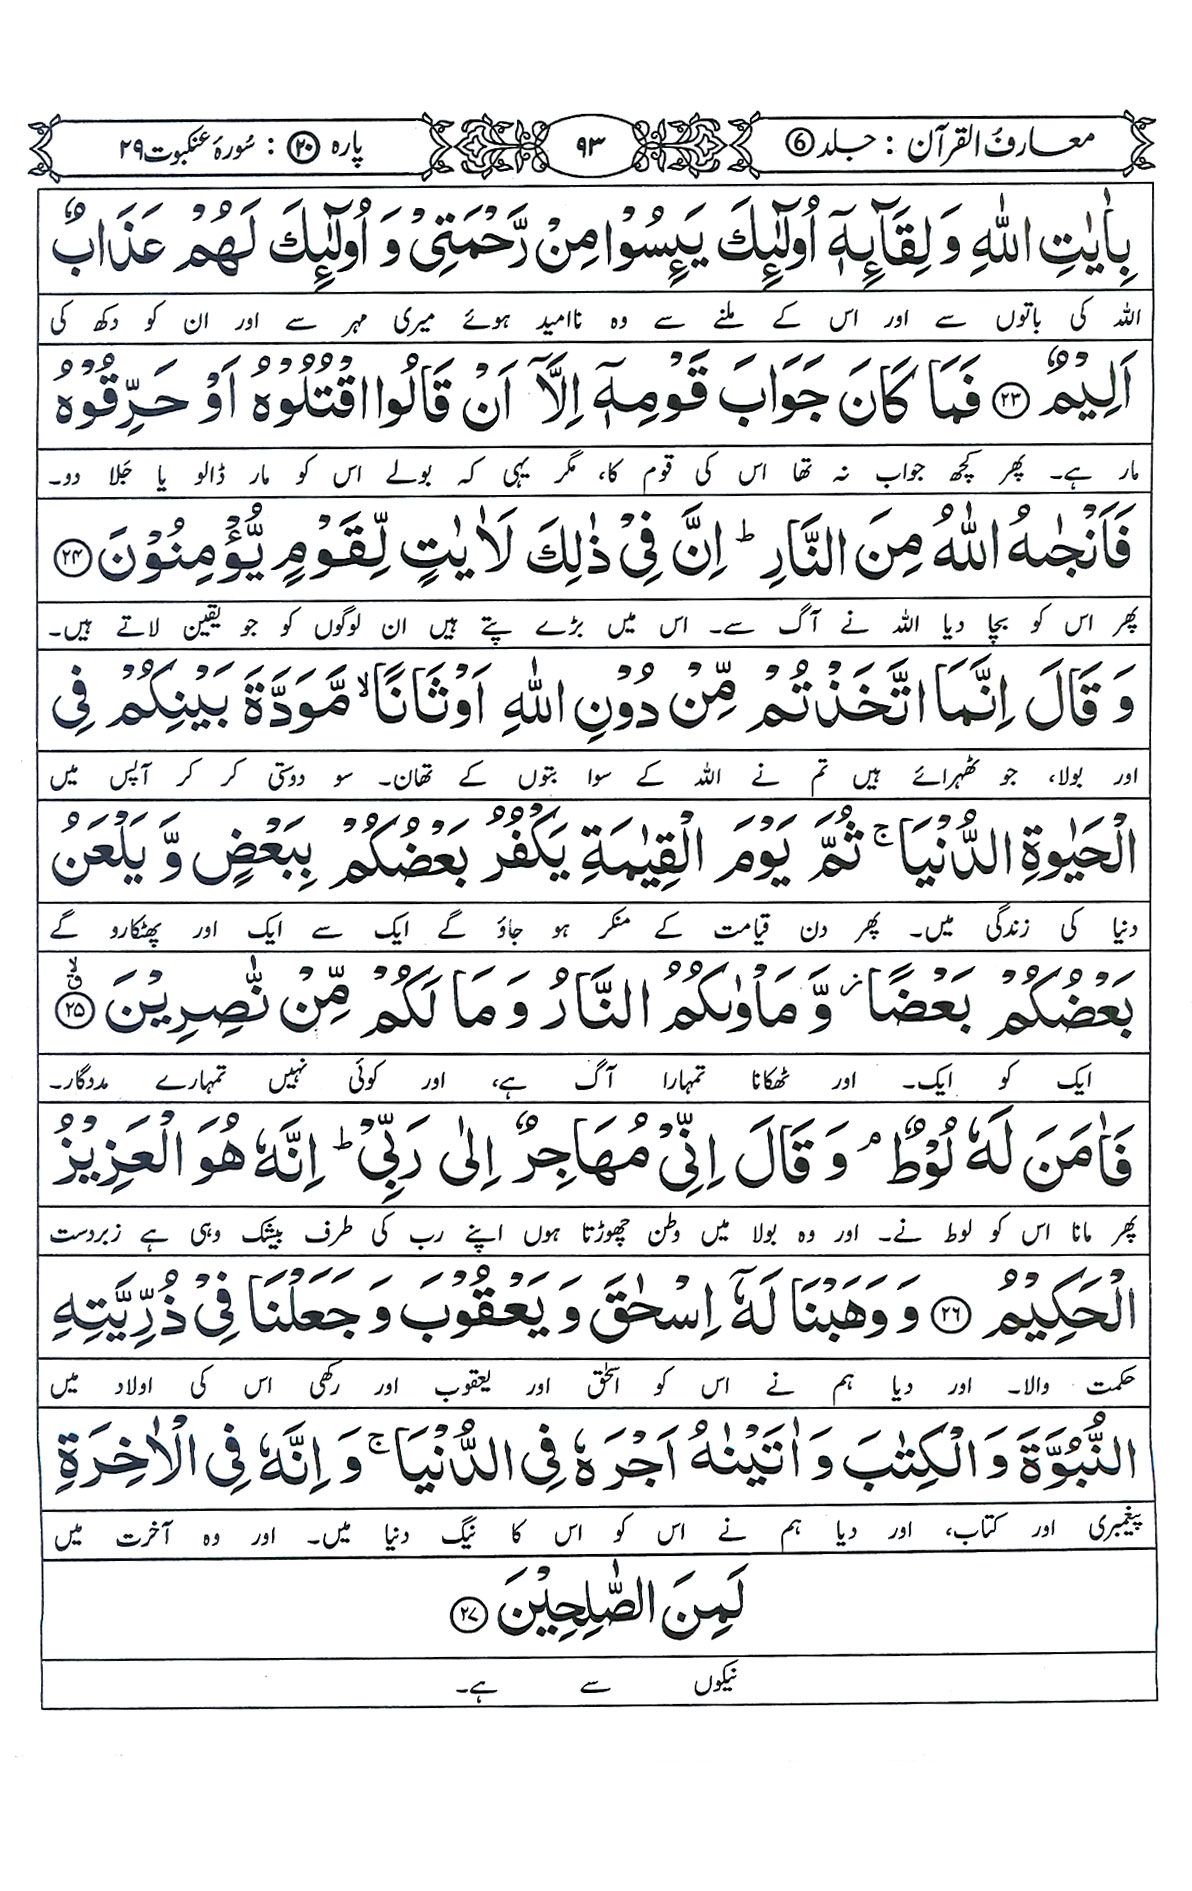 معارف القرآن : جلد 6
۹۳
پارہ ۲۰ : سُورۂ عنکبوت ۲۹
بِاٰیٰتِ اللّٰهِ وَ لِقَآئِهٖۤ اُولٰٓئِكَ یَىِٕسُوْا مِنْ رَّحْمَتِیْ وَ اُولٰٓئِكَ لَهُمْ عَذَابٌ
اللہ کی باتوں سے اور اس کے ملنے سے وہ ناامید ہوئے میری مہر سے اور ان کو دکھ کی
اَلِیْمٌ ۲۳ فَمَا كَانَ جَوَابَ قَوْمِهٖۤ اِلَّاۤ اَنْ قَالُوا اقْتُلُوْهُ اَوْ حَرِّقُوْهُ
مار ہے۔ پھر کچھ جواب نہ تھا اس کی قوم کا، مگر یہی کہ بولے اس کو مار ڈالو یا جَلا دو۔
فَاَنْجٰىهُ اللّٰهُ مِنَ النَّارِ ؕ اِنَّ فِیْ ذٰلِكَ لَاٰیٰتٍ لِّقَوْمٍ یُّؤْمِنُوْنَ ۲۴
پھر اس کو بچا دیا اللہ نے آگ سے۔ اس میں بڑے پتے ہیں ان لوگوں کو جو یقین لاتے ہیں۔
وَ قَالَ اِنَّمَا اتَّخَذْتُمْ مِّنْ دُوْنِ اللّٰهِ اَوْثَانًا ۙ مَّوَدَّةَ بَیْنِكُمْ فِی
اور بولا، جو ٹھہرائے ہیں تم نے اللہ کے سوا بتوں کے تھان۔ سو دوستی کر کر آپس میں
الْحَیٰوةِ الدُّنْیَا ۚ ثُمَّ یَوْمَ الْقِیٰمَةِ یَكْفُرُ بَعْضُكُمْ بِبَعْضٍ وَّ یَلْعَنُ
دنیا کی زندگی میں۔ پھر دن قیامت کے منکر ہو جاؤ گے ایک سے ایک اور پھٹکارو گے
بَعْضُكُمْ بَعْضًا ؗ وَّ مَاْوٰىكُمُ النَّارُ وَ مَا لَكُمْ مِّنْ نّٰصِرِیْنَ ۲۵ ۗۙ
ایک کو ایک۔ اور ٹھکانا تمہارا آگ ہے، اور کوئی نہیں تمہارے مددگار۔
فَاٰمَنَ لَهٗ لُوْطٌ ۘ وَ قَالَ اِنِّیْ مُهَاجِرٌ اِلٰى رَبِّیْ ؕ اِنَّهٗ هُوَ الْعَزِیْزُ
پھر مانا اس کو لوط نے۔ اور وہ بولا میں وطن چھوڑتا ہوں اپنے رب کی طرف بیشک وہی ہے زبردست
الْحَكِیْمُ ۲۶ وَ وَهَبْنَا لَهٗۤ اِسْحٰقَ وَ یَعْقُوْبَ وَ جَعَلْنَا فِیْ ذُرِّیَّتِهِ
حکمت والا۔ اور دیا ہم نے اس کو اسحٰق اور یعقوب اور رکھی اس کی اولاد میں
النُّبُوَّةَ وَ الْكِتٰبَ وَ اٰتَیْنٰهُ اَجْرَهٗ فِی الدُّنْیَا ۚ وَ اِنَّهٗ فِی الْاٰخِرَةِ
پیغمبری اور کتاب، اور دیا ہم نے اس کو اس کا نیگ دنیا میں۔ اور وہ آخرت میں
لَمِنَ الصّٰلِحِیْنَ ۲۷
نیکوں سے ہے۔